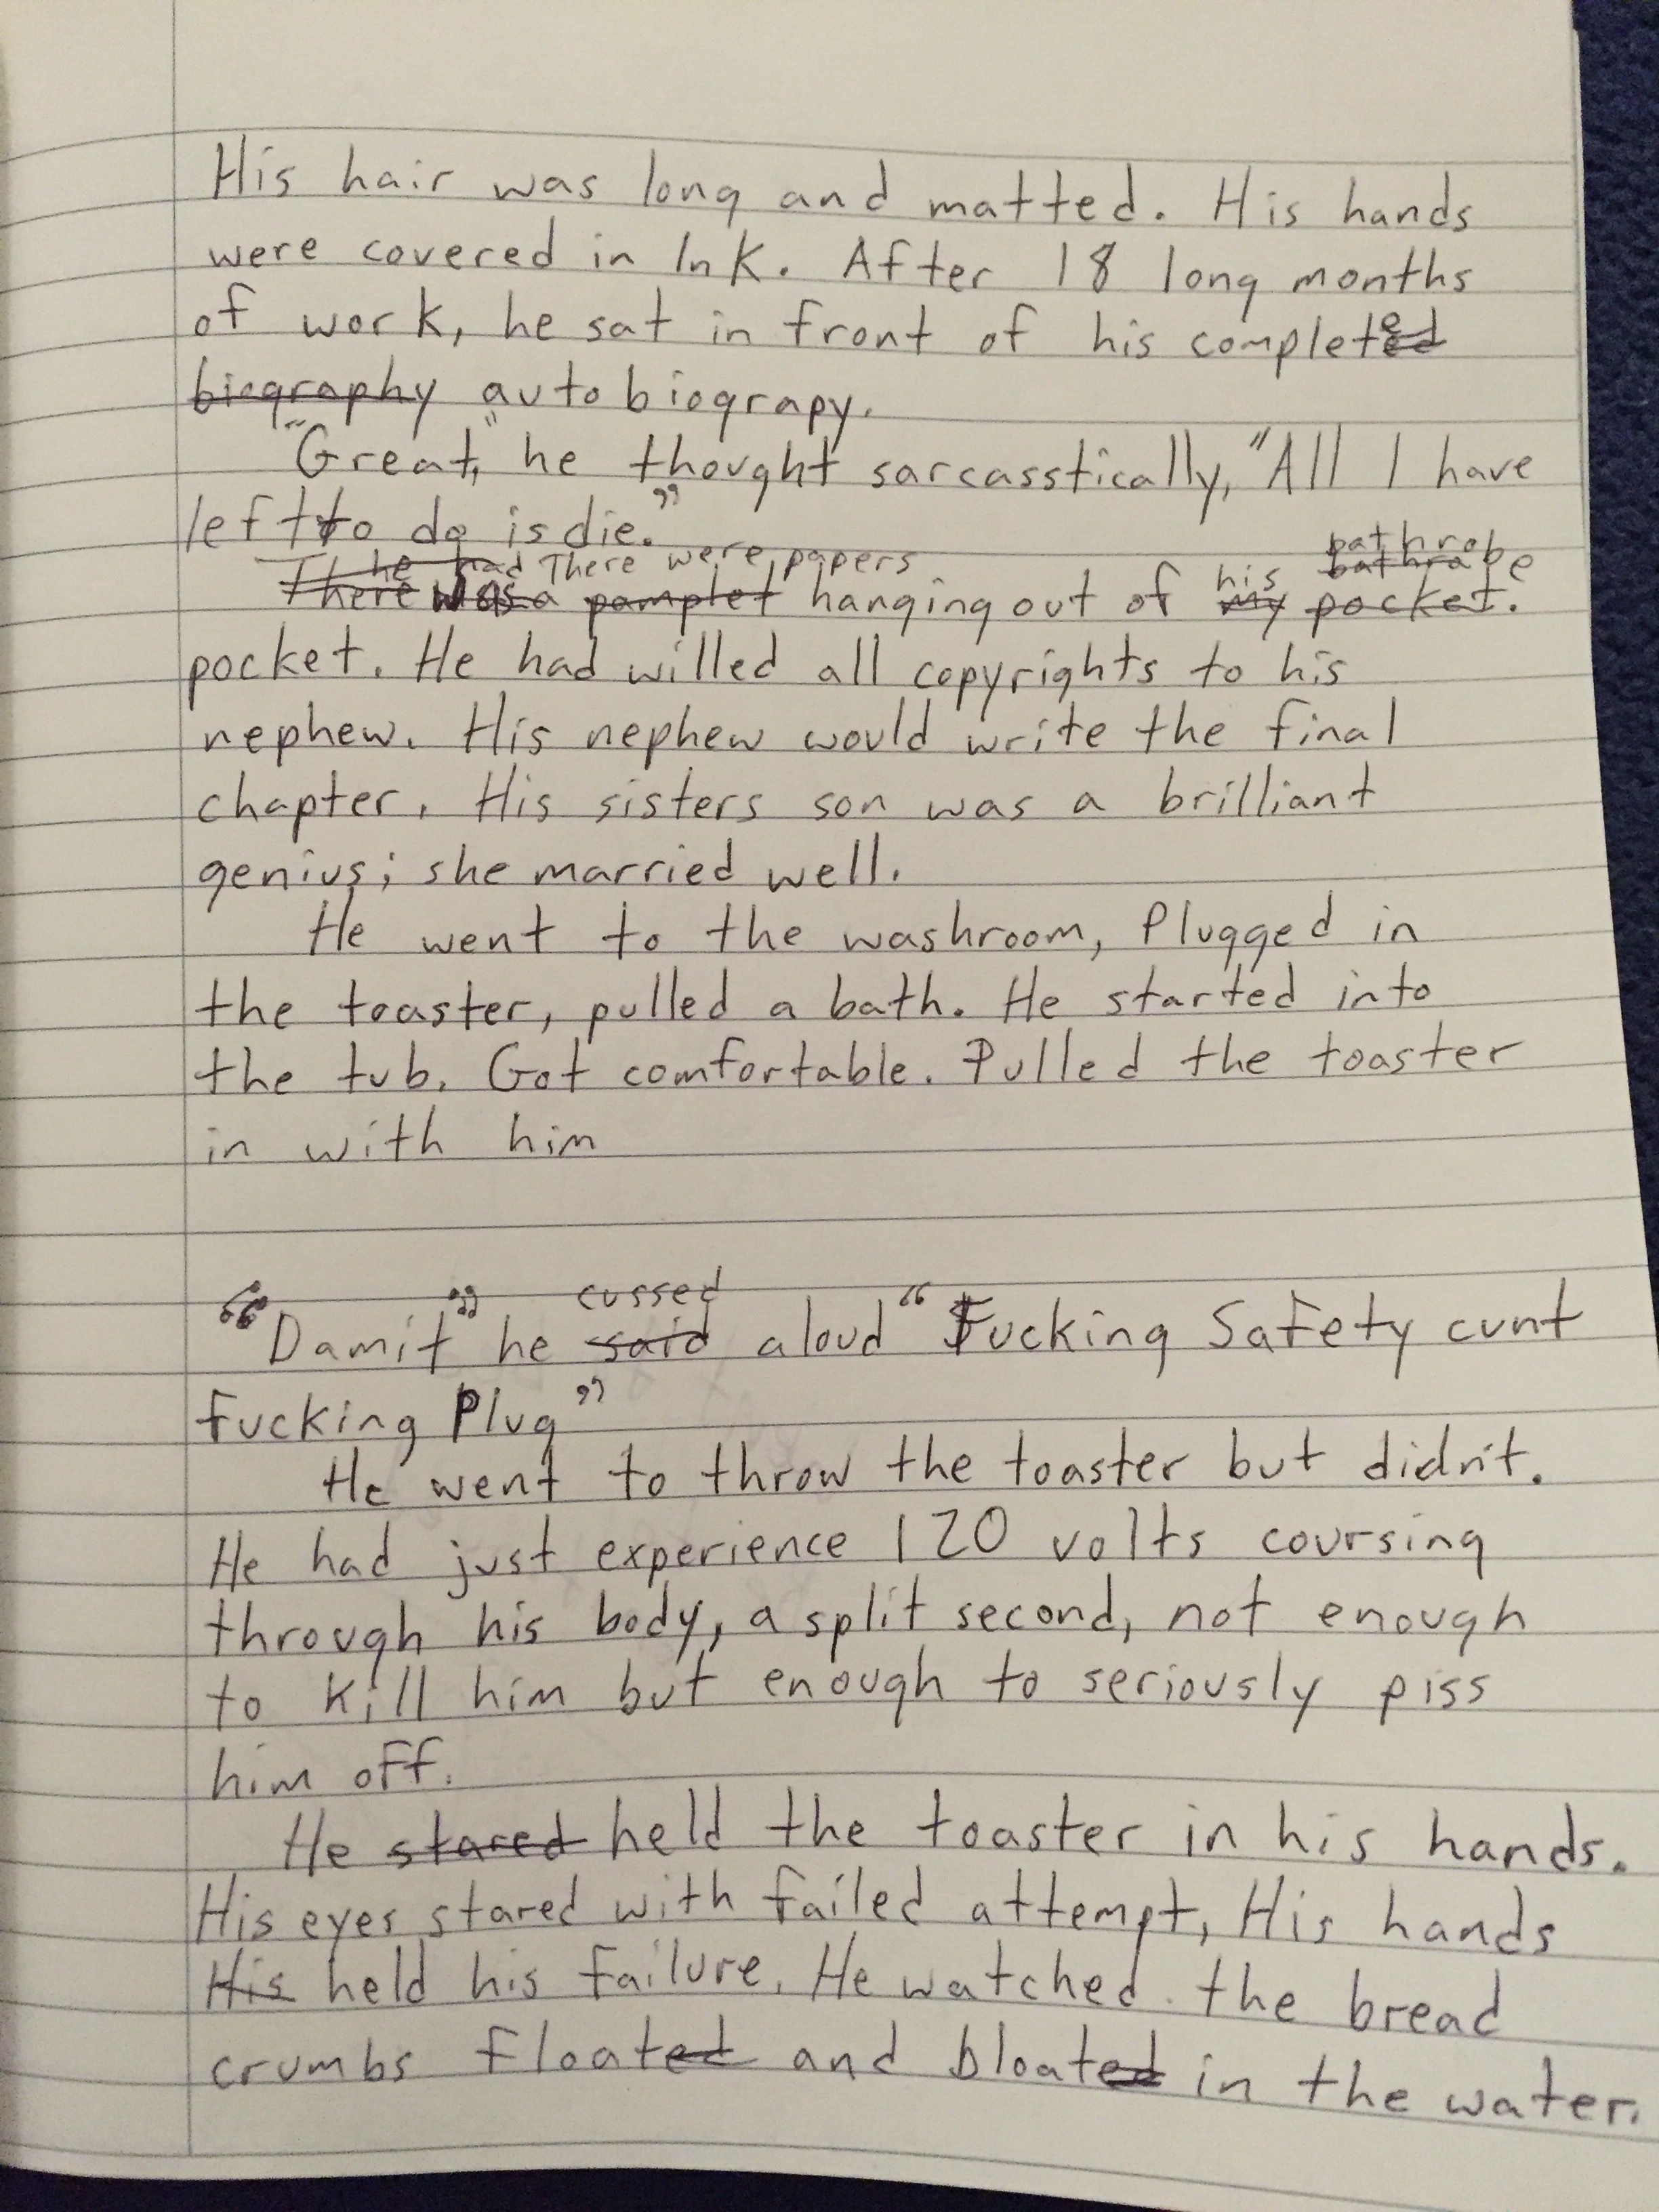 His hair was long and matted. His hands
were covered in Ink. After 18 long months
of work, he sat in front of his complete ed
biography autobiograpy.
"Great," he thought sarcasstically, "All I have
left to do is die."
he had There were papers bathrobe
There was a pamplet hanging out of his my bathrobe pocket.
pocket. He had willed all copyrights to his
nephew. His nephew would write the final
chapter. His sisters son was a brilliant
genius; she married well.
He went to the washroom, Plugged in
the toaster, pulled a bath. He started into
the tub. Got comfortable. Pulled the toaster
in with him
cussed
"Damit" he said aloud "Fucking Safety cunt
fucking Plug"
He went to throw the toaster but didn't.
He had just experience 120 volts coursing
through his body, a split second, not enough
to kill him but enough to seriously piss
him off.
He stared held the toaster in his hands.
His eyes stared with failed attempt, His hands
His held his failure. He watched the bread
crumbs floated and bloated in the water.